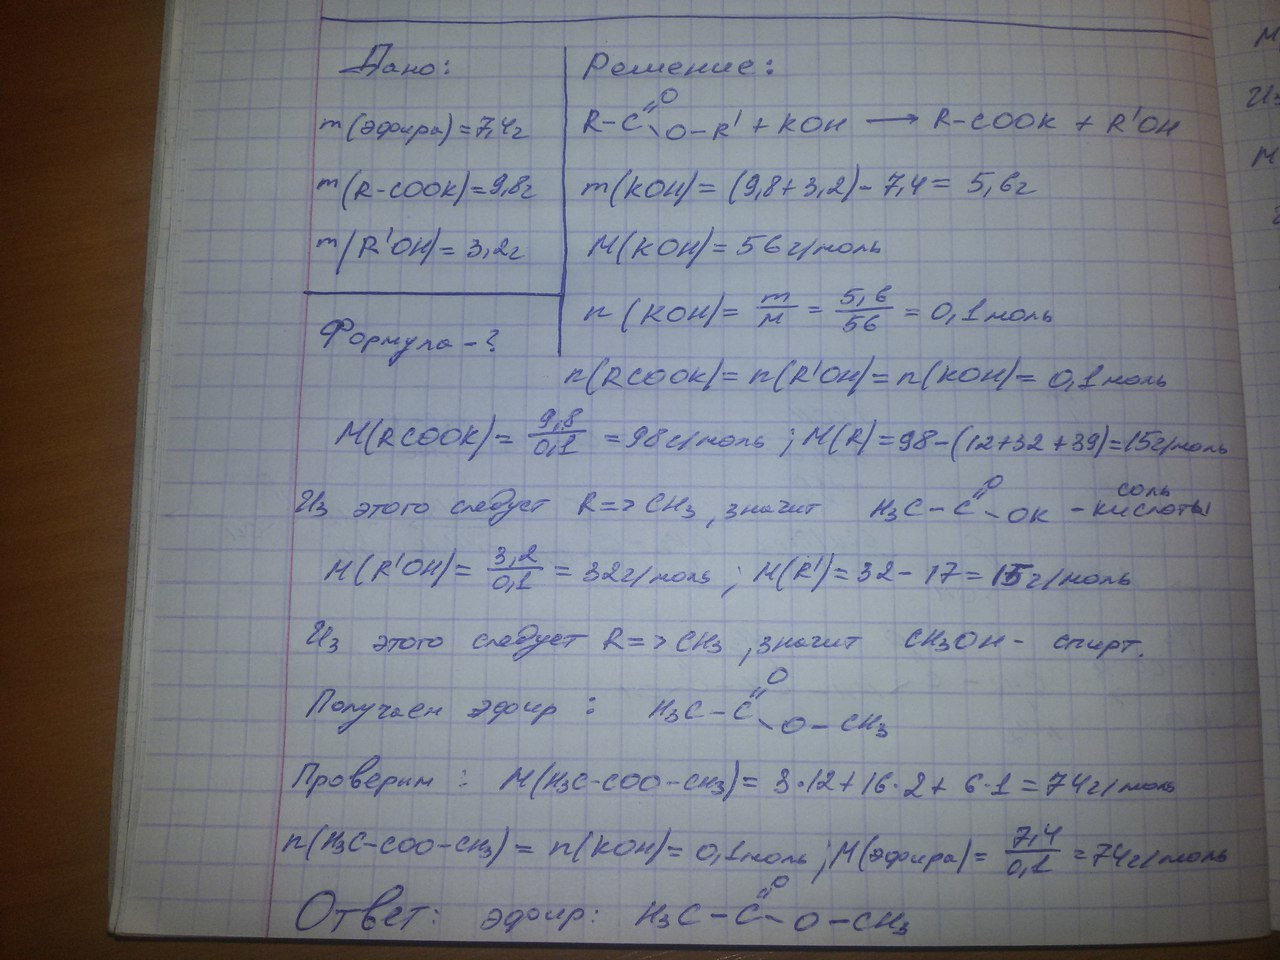 Дано:
m(эфира)=7,4г
m(R-COOK)=9,8г
m(R'OH)=3,2г
Формула-?
Решение:
R-C=O O-R' + KOH → R-COOK + R'OH
m(KOH)=(9,8+3,2)-7,4=5,6г
M(KOH)=56г/моль
n(KOH)=m/M=5,6/56=0,1моль
n(RCOOK)=n(R'OH)=n(KOH)=0,1моль
M(RCOOK)=9,8/0,1=98г/моль; M(R)=98-(12+32+39)=15г/моль
Из этого следует R=>CH₃, значит H₃C-C=O OK - соль кислоты
M(R'OH)=3,2/0,1=32г/моль; M(R')=32-17=15г/моль
Из этого следует R=>CH₃, значит CH₃OH- спирт.
Получаем эфир: H₃C-C=O O-CH₃
Проверим: M(H₃C-COO-CH₃)=3·12+16·2+6·1=74г/моль
n(H₃C-COO-CH₃)=n(KOH)=0,1моль; M(эфира)=7,4/0,1=74г/моль
Ответ: эфир: H₃C-C=O-O-CH₃